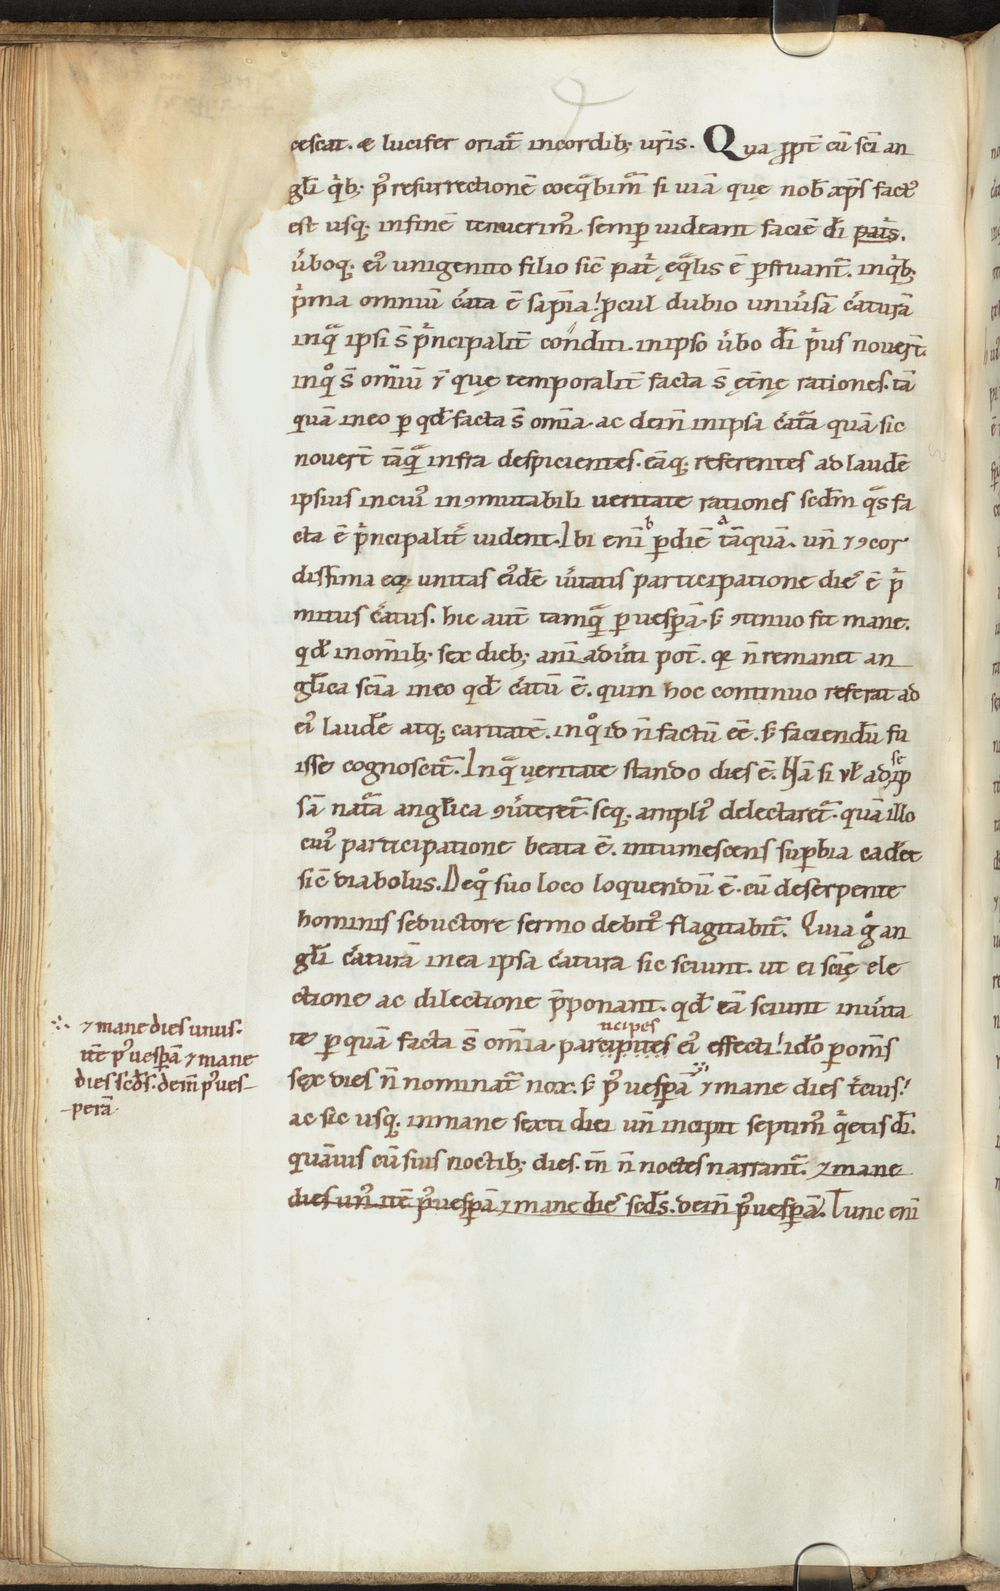 cescat. & lucifer oriat̄ incordib; ur̄is. Qua ꝓpt̄ cū sc̄i an
gl̄i q̄b; p̄ resurrectionē coeq̄bim̄ si uiā quę nob̄ xp̄s fact᷒
est usq; infinē tenuerim᷒. semꝑ uideant faciē dī pat̄s.
ūboq; ei᷒ unigenito filio sic̄ pat̄ ęq̄lis ē ꝑfruant̄. inq̄b;
p̄ma omniū c̄ata ē sapīa! ꝓcul dubio uniūsā c̄aturā
inq̄ ipsi s̄ p̄ncipalit̄ conditi. inipso ūbo dī p̄us nouer̄t.
inq̊ s̄ om̄iū ⁊ quę temporalit̄ facta s̄ ęt̄nę rationes. tā
quā ineo ꝑ qd̄ facta s̄ om̄ia. ac dein̄ inipsa c̄ata quā sic
nouer̄t tāq̄ infra despicientes. eāq; referentes ad laudē
ipsius incui᷒ inꝯmutabili ueritate rationes scdm̄ q̄s fa
cta ē p̄ncipalit̄ uident. Ibi enī b ꝑdiē a tāquā. un̄ ⁊ ꝯcor
dissima eoꝝ unitas ei᷒dē ūitatis participatione die᷒ ē p̄
mitus c̄atus. hic aut̄ tamq̄ ꝑ uesꝑā. s; ꝯtinuo fit mane.
qd̄ inom̄ib; sex dieb; anī aduti pot̄. qꝛ n̄ remanet an
gl̄ica scīa ineo qd̄ c̄atū ē. quin hoc continuo referat ad
ei᷒ laudē atq; caritatē. inq̊ id n̄ factū eē. s; faciendū fu
isse cognoscit̄. Inq̄ ueritate stando dies ē. Nā si ul̄ ad se ip
sā nat̄a anglica ꝯūteret̄. seq; ampli᷒ delectaret̄. quā illo
cui᷒ participatione beata ē. intumescens suꝑbia cad̄et
sic̄ diabolus. Deq̊ suo loco loquendū ē. cū deserpente
hominis seductore sermo debit᷒ flagitabit̄. Quia g̊ an
gl̄i c̄aturā inea ipsa c̄atura sic sciunt. ut ei scīę ele
ctione ac dilectione p̄ponant. qd̄ eā sciunt inūita
te ꝑ quā facta s̄ om̄ia. participites ncipes ei᷒ effecti! id̊o ꝑ om̄s
sex dies n̄ nominat̄ nox. s; p᷒ uesꝑā ⁊ mane dies t̄cius!
ac sic usq; inmane sexti diei un̄ incipit septim᷒ q̄etis dī.
quāuis cū suis noctib; dies. tn̄ n̄ noctes narrant̄. ⁊ mane
dies un᷒ itē p᷒ uesꝑā ⁊ mane die᷒ scd̄s. dein̄ p᷒ uesꝑā. Tunc enī
∴ ⁊ mane dies unus.
itē p᷒ uesꝑā ⁊ mane
dies scd̄s. dein̄ p᷒ ues
perā